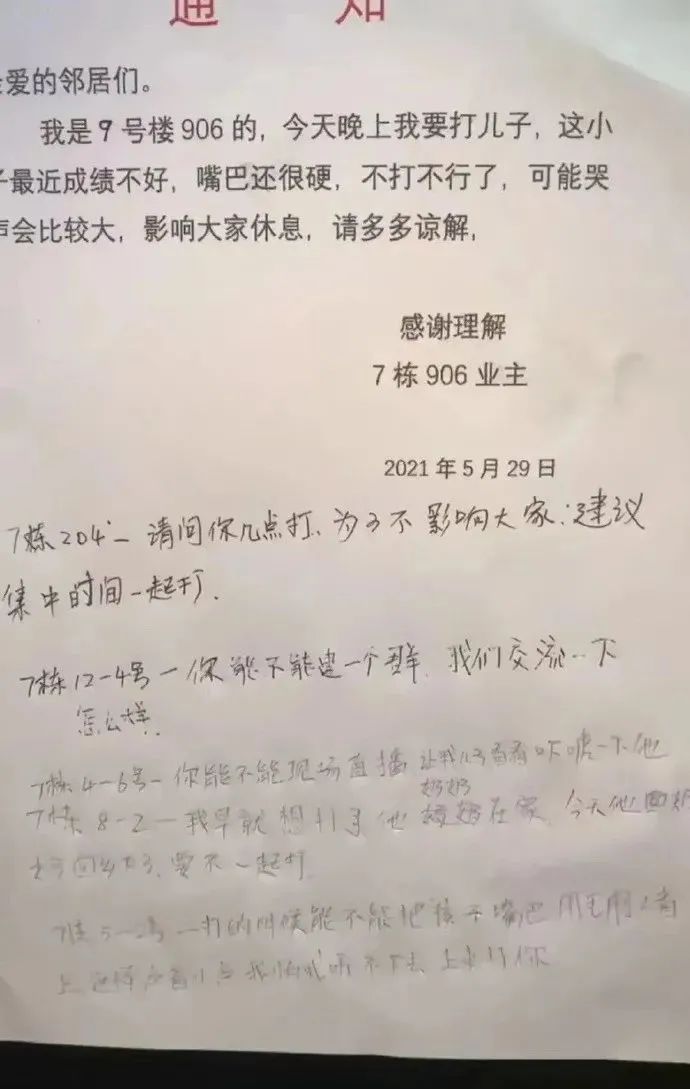 通 知
爱的邻居们。
我是9号楼906的，今天晚上我要打儿子，这小
子最近成绩不好，嘴巴还很硬，不打不行了，可能哭
声会比较大，影响大家休息，请多多谅解，
感谢理解
7栋906业主
2021年5月29日
7栋204 — 请问你几点打、为了不影响大家：建议
集中时间一起打.
7栋12-4号 — 你能不能建一个群. 我们交流一下
怎么样.
7栋4-6号 — 你能不能现场直播 让我儿子看看吓唬一下他
奶奶
7栋8-2 — 我早就想打了他 在家 今天他
回 了、要不一起打.
打的时候能不能把孩子嘴巴用毛巾
上 我怕我听不下去 上来打你